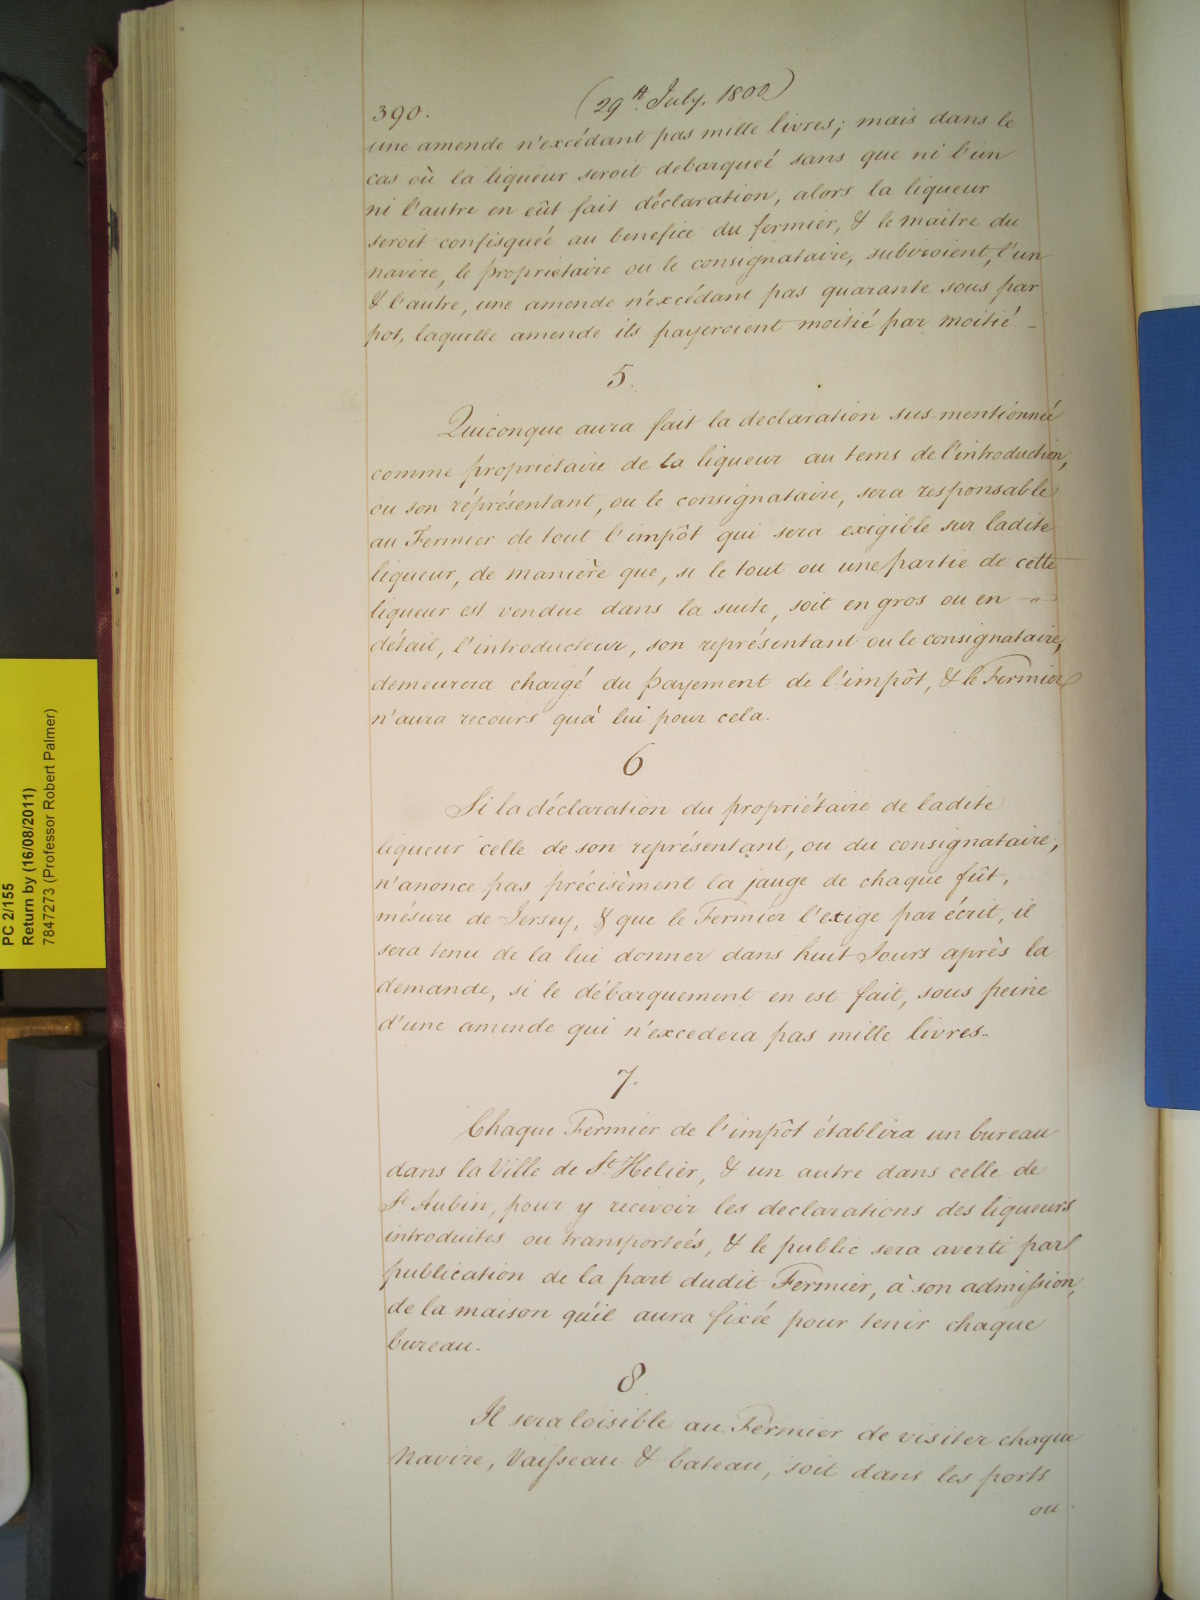 390.
(29th July. 1800)
une amende n'excédant pas mille livres; mais dans le
cas où la liqueur seroit debarqueé sans que ni l'un
ni l'autre en eût fait déclaration, alors la liqueur
seroit confisquée au benefice du fermier, & le maitre du
navire, le propriétaire ou le consignataire, subiroient, l'un
& l'autre, une amende n'excédant pas quarante sous par
pot, laquelle amende ils payeroient moitié par moitié. -
5.
Quiconque aura fait la declaration sus-mentionneé
comme propriétaire de la liqueur au tems de l'introduction,
ou son réprésentant, ou le consignataire, sera responsable
au Fermier de tout l'impôt qui sera exigible sur ladite
liqueur, de manière que, si le tout ou une partie de cette
liqueur est vendue dans la suite, soit en gros ou en
détail, l'introducteur, son représentant ou le consignataire,
demeurera chargé du payement de l'impôt, & le Fermier
n'aura recours qu'à lui pour cela.
6
Si la déclaration du propriétaire de ladite
liqueur celle de son représentant, ou du consignataire,
n'anonce pas précisèment la jauge de chaque fût,
mésure de Jersey, & que le Fermier l'exige par écrit, il
sera tenu de la lui donner dans huit Jours après la
demande, si le débarquement en est fait, sous peine
d'une amende qui n'excedera pas mille livres.
7.
Chaque Fermier de l'impôt établira un bureau
dans la Ville de St. Helier, & un autre dans celle de
St Aubin, pour y recevoir les declarations des liqueurs
introduites ou transporteés, & le public sera averti par
publication de la part dudit Fermier, à son admission,
de la maison qu'il aura fixée pour tenir chaque
bureau.
8
Il sera loisible au Fermier de visiter chaque
Navire, Vaisseau & bateau, soit dans les ports
ou
PC 2/155
Return by (16/08/2011)
7847273 (Professor Robert Palmer)